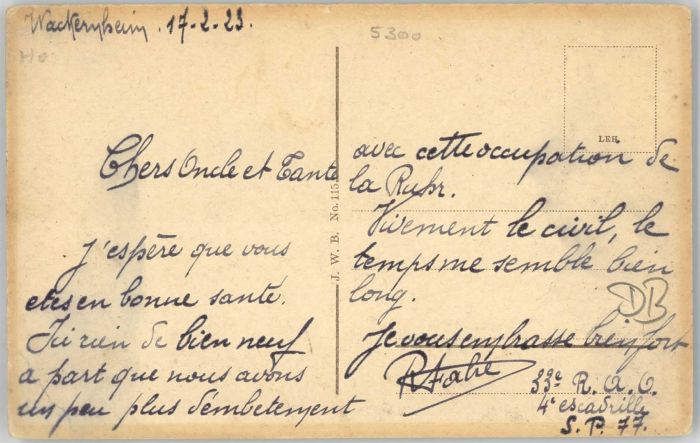 Wackernheim .17-2-23.
5300
Ho
LEH.
Chers Oncle et Tante
J'espère que vous
etes en bonne santé.
Ici rien de bien neuf
a part que nous avons
un peu plus d'embetement
J. W. B. No. 115
avec cette occupation de
la Ruhr.
Vivement le civil, le
temps me semble bien
long.
DB
Je vous embrasse bien fort
R Fabre
33e R. A. O.
4e escadrille
S. P. 77.